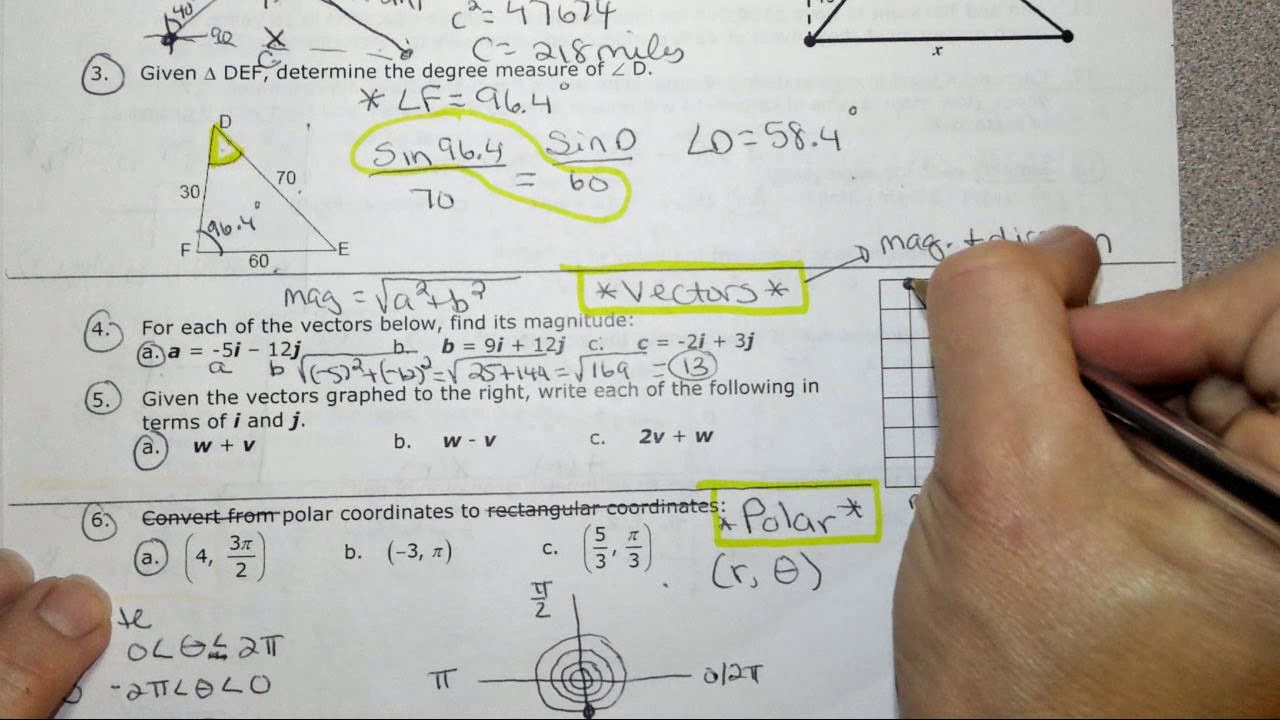 40°
90
x
c² = 47674
C = 218 miles
x
3. Given Δ DEF, determine the degree measure of ∠ D.
* ∠F = 96.4°
Sin 96.4 / 70 = Sin D / 60
∠D = 58.4°
D
30
70
96.4°
F
E
60
mag. +
mag = √a²+b²
* Vectors *
4. For each of the vectors below, find its magnitude:
a. a = -5i – 12j b. b = 9i + 12j c. c = -2i + 3j
a b √(-5)²+(-12)² = √25+144 = √169 = 13
5. Given the vectors graphed to the right, write each of the following in
terms of i and j.
a. w + v b. w - v c. 2v + w
6. Convert from polar coordinates to rectangular coordinates:
* Polar *
a. (4, 3π/2) b. (−3, π) c. (5/3, π/3)
(r, θ)
π/2
0<θ≤2π
π
0/2π
-2π<θ<0